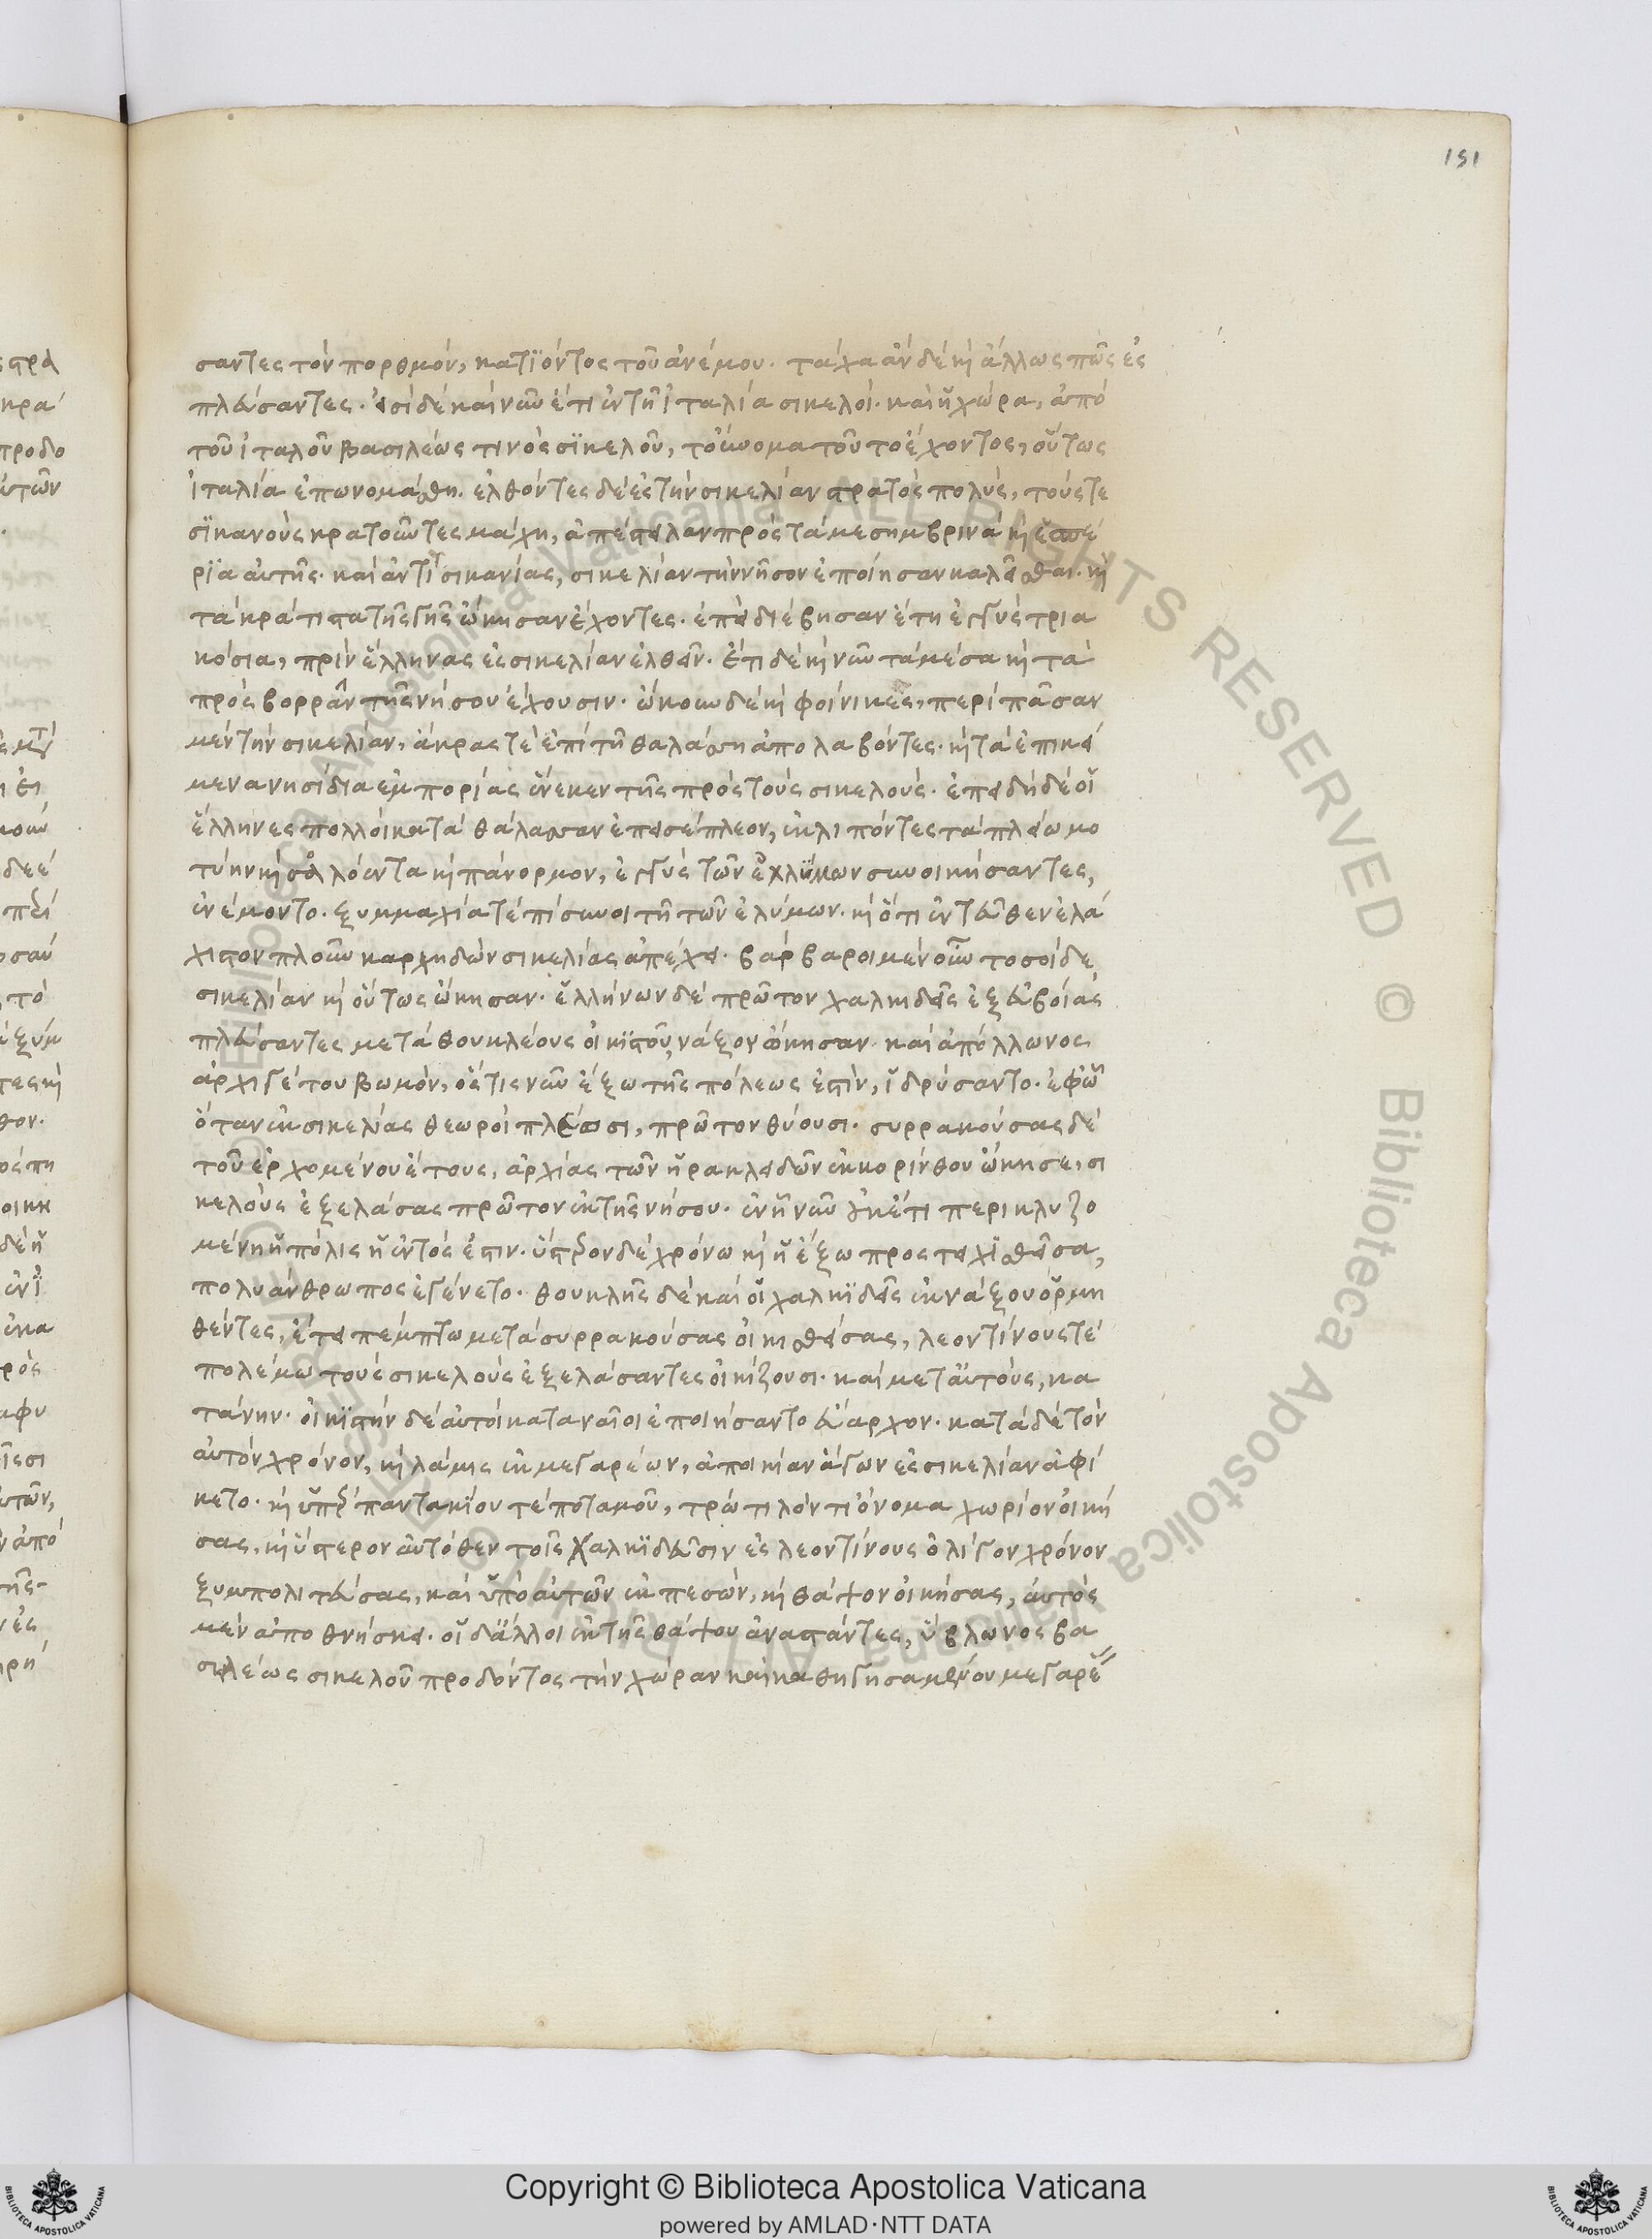 151
σαντες τὸν πορθμὸν, κατϊόντος τοῦ ἀνέμου. τάχα ἂν δὲ κὶ ἄλλως πῶς ἐς
πλεύσαντες. εἰσὶ δὲ καὶ νῦν ἔτι ἐν τῆ ἰταλία σικελοί. καὶ ἡ χώρα, ἀπὸ
τοῦ ἰταλοῦ βασιλέως τινὸς σϊκελοῦ, τοὔνομα τοῦτο ἔχοντος, οὕτως
ἰταλία ἐπωνομάσθη. ἐλθόντες δὲ ἐς τὴν σικελίαν στρατὸς πολὺς, τούς τε
σϊκανοὺς κρατοῦντες μάχη, ἀπέστειλαν πρὸς τὰ μεσημβρινὰ κὶ ἑσπέ
ρϊα αὐτῆς. καὶ ἀντὶ σικανίας, σικελίαν τὴν νῆσον ἐποίησαν καλεῖσθαι. κὶ
τὰ κράτιστα τῆς γῆς ὤκησαν ἔχοντες. ἐπεὶ διέβησαν ἔτη ἐγγὺς τρια
κόσια, πρὶν ἕλληνας ἐς σικελίαν ἐλθεῖν. ἔτι δὲ κὶ νῦν τὰ μέσα κὶ τὰ
πρὸς βορρᾶν τῆς νήσου ἔχουσιν. ὤκουν δὲ κὶ φοίνικες, περὶ πᾶσαν
μὲν τὴν σικελίαν, ἄκρας τὲ ἐπὶ τῆ θαλάσση ἀπολαβόντες. κὶ τὰ ἐπικεί
μενα νησίδια ἐμπορίας ἕνεκεν τῆς πρὸς τοὺς σικελούς. ἐπειδὴ δὲ οἱ
ἕλληνες πολλοὶ κατὰ θάλασσαν ἐπεισέπλεον, ἐκλιπόντες τὰ πλείω μο
τύην κὶ σολόεντα κὶ πάνορμον, ἐγγὺς τῶν ἐλύμων συνοικήσαντες,
ἐνέμοντο. ξυμμαχία τὲ πίσυνοι τῆ τῶν ἐλύμων. κὶ ὅτι ἐντεῦθεν ἐλά
χιστον πλοῦν καρχηδὼν σικελίας ἀπέχει. βάρβαροι μὲν οὖν τοσοίδε
σικελίαν κὶ οὕτως ὤκησαν. ἑλλήνων δὲ πρῶτον χαλκιδεῖς ἐξ εὐβοίας
πλεύσαντες μετὰ θουκλέους οἰκϊστοῦ, νάξον ὤκησαν. καὶ ἀπόλλωνος
ἀρχιγέτου βωμὸν, ὅς τις νῦν ἔξω τῆς πόλεως ἐστὶν, ἱδρύσαντο. ἐφ' ὧ
ὅταν ἐκ σικελίας θεωροὶ πλέωσι, πρῶτον θύουσι. συρρακούσας δὲ
τοῦ ἐρχομένου ἔτους, ἀρχίας τῶν ἡρακλειδῶν ἐκ κορίνθου ὤκησε, σι
κελοὺς ἐξελάσας πρῶτον ἐκ τῆς νήσου. ἐν ἧ νῦν οὐκέτι περικλυζο
μένη ἡ πόλις ἡ ἐντός ἐστιν. ὕστερον δὲ χρόνω κὶ ἡ ἔξω προστειχισθεῖσα,
πολυάνθρωπος ἐγένετο. θουκλῆς δὲ καὶ οἱ χαλκϊδεῖς ἐκ νάξου ὁρμη
θέντες, ἔτει πέμπτω μετὰ συρρακούσας οἰκισθείσας, λεοντίνους τὲ
πολέμω τοὺς σικελοὺς ἐξελάσαντες οἰκίζουσι. καὶ μετ' αὐτοὺς, κα
τάνην. οἰκϊστὴν δὲ αὐτοὶ καταναῖοι ἐποιήσαντο εὔαρχον. κατὰ δὲ τὸν
αὐτὸν χρόνον, κὶ λάμις ἐκ μεγαρέων, ἀποικίαν ἄγων ἐς σικελίαν ἀφί
κετο. κὶ ὑπὲρ παντακίου τὲ ποταμοῦ, τρώτιλόν τι ὄνομα χωρίον οἰκή
σας, κὶ ὕστερον αὐτόθεν τοῖς χαλκϊδεῦσιν ἐς λεοντίνους ὀλίγον χρόνον
ξυμπολιτεύσας, καὶ ὑπὸ αὐτῶν ἐκπεσὼν, κὶ θάψον οἰκήσας, αὐτὸς
μὲν ἀποθνήσκει. οἱ δ' ἄλλοι ἐκ τῆς θάψου ἀναστάντες, ὕβλωνος βα
σιλέως σικελοῦ προδόντος τὴν χώραν καὶ καθηγησαμένου μεγαρέ
Copyright © Biblioteca Apostolica Vaticana
powered by AMLAD·NTT DATA